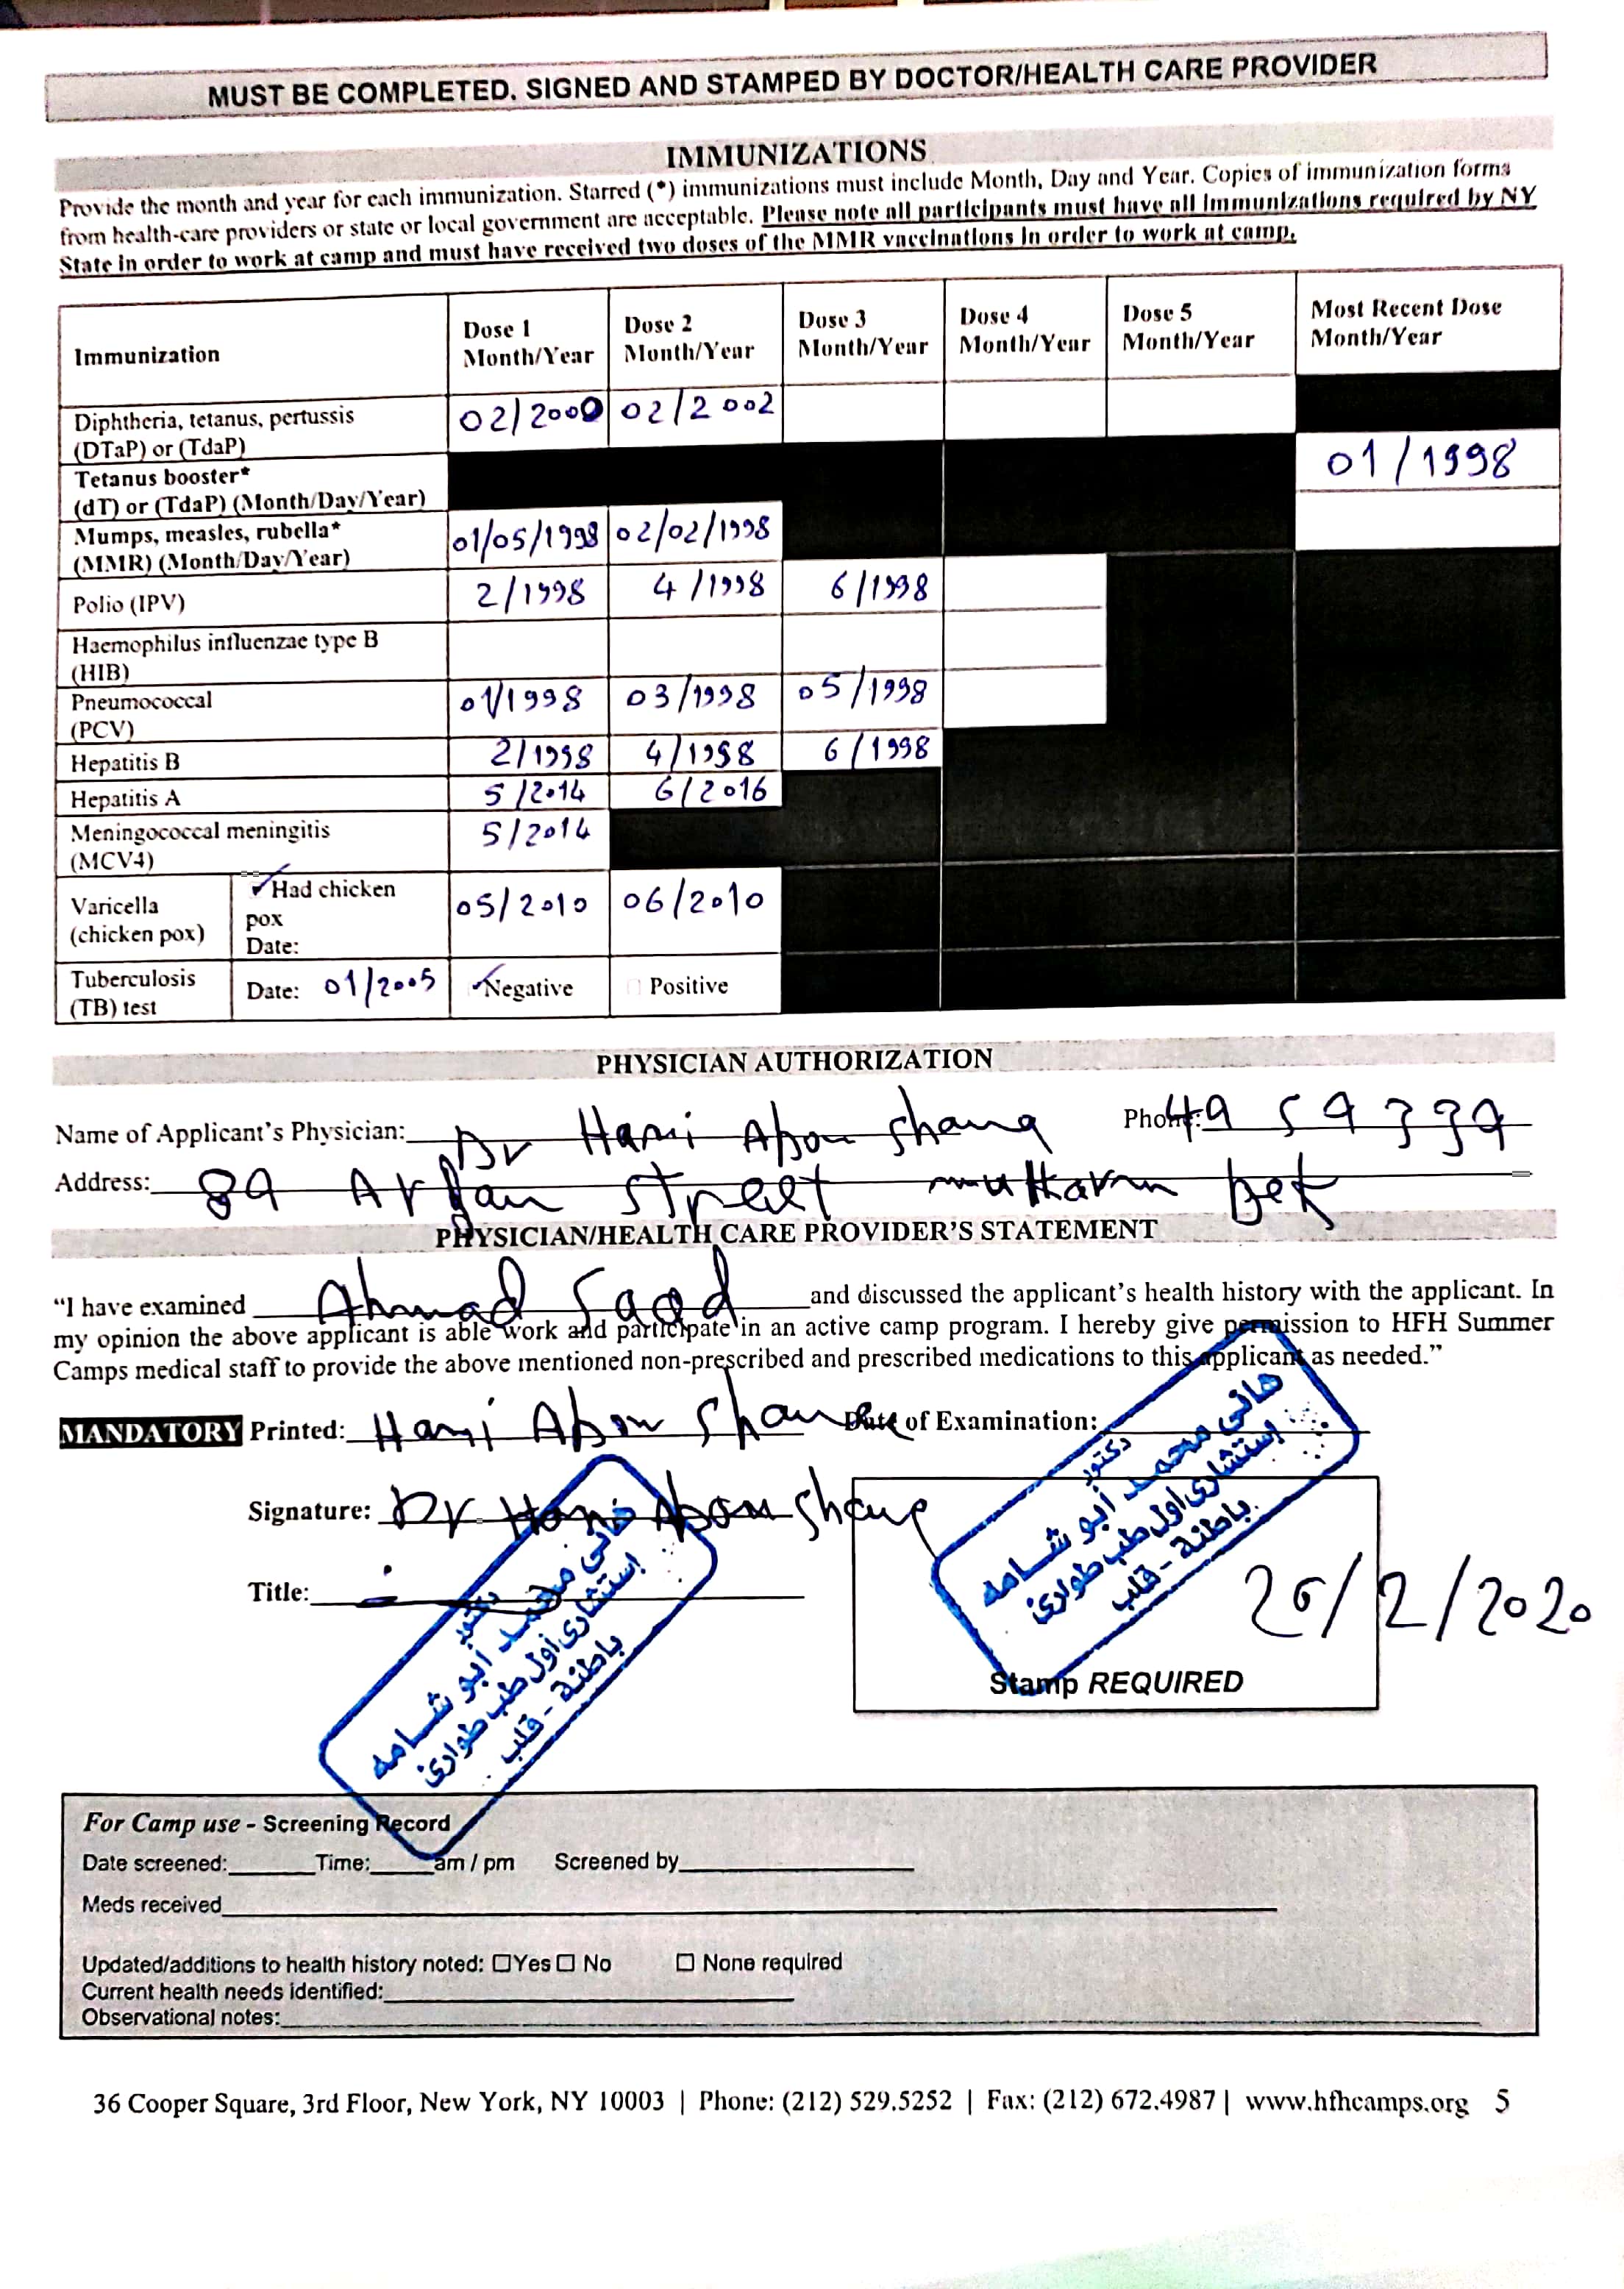 MUST BE COMPLETED. SIGNED AND STAMPED BY DOCTOR/HEALTH CARE PROVIDER
IMMUNIZATIONS
Provide the month and year for each immunization. Starred (*) immunizations must include Month, Day and Year. Copies of immunization forms
from health-care providers or state or local government are acceptable. Please note all participants must have all immunizations required by NY
State in order to work at camp and must have received two doses of the MMR vaccinations in order to work at camp.
Immunization Dose 1 Month/Year Dose 2 Month/Year Dose 3 Month/Year Dose 4 Month/Year Dose 5 Month/Year Most Recent Dose Month/Year
Diphtheria, tetanus, pertussis (DTaP) or (TdaP) 02/2000 02/2002
Tetanus booster* (dT) or (TdaP) (Month/Day/Year) 01/1998
Mumps, measles, rubella* (MMR) (Month/Day/Year) 01/05/1998 02/02/1998
Polio (IPV) 2/1998 4/1998 6/1998
Haemophilus influenzae type B (HIB)
Pneumococcal (PCV) 01/1998 03/1998 05/1998
Hepatitis B 2/1998 4/1998 6/1998
Hepatitis A 5/2014 6/2016
Meningococcal meningitis (MCV4) 5/2014
Varicella (chicken pox) Had chicken pox Date: 05/2010 06/2010
Tuberculosis (TB) test Date: 01/2005 Negative Positive
PHYSICIAN AUTHORIZATION
Name of Applicant's Physician: Dr Hani Abou Shama Phone: 4959339
Address: 89 Street bek
PHYSICIAN/HEALTH CARE PROVIDER'S STATEMENT
"I have examined Ahmad Saad and discussed the applicant's health history with the applicant. In
my opinion the above applicant is able work and participate in an active camp program. I hereby give permission to HFH Summer
Camps medical staff to provide the above mentioned non-prescribed and prescribed medications to this applicant as needed."
MANDATORY Printed: Hani Abou Shama Date of Examination:
Signature: Dr. Hani Abou Shama
Title:
دكتور
هانى محمد أبو شامه
إستشارى أول طب طوارئ
باطنة - قلب
دكتور
هانى محمد أبو شامه
إستشارى أول طب طوارئ
باطنة - قلب
26/2/2020
Stamp REQUIRED
For Camp use - Screening Record
Date screened: Time: am / pm Screened by
Meds received
Updated/additions to health history noted: Yes No None required
Current health needs identified:
Observational notes:
36 Cooper Square, 3rd Floor, New York, NY 10003 | Phone: (212) 529.5252 | Fax: (212) 672.4987 | www.hfhcamps.org 5